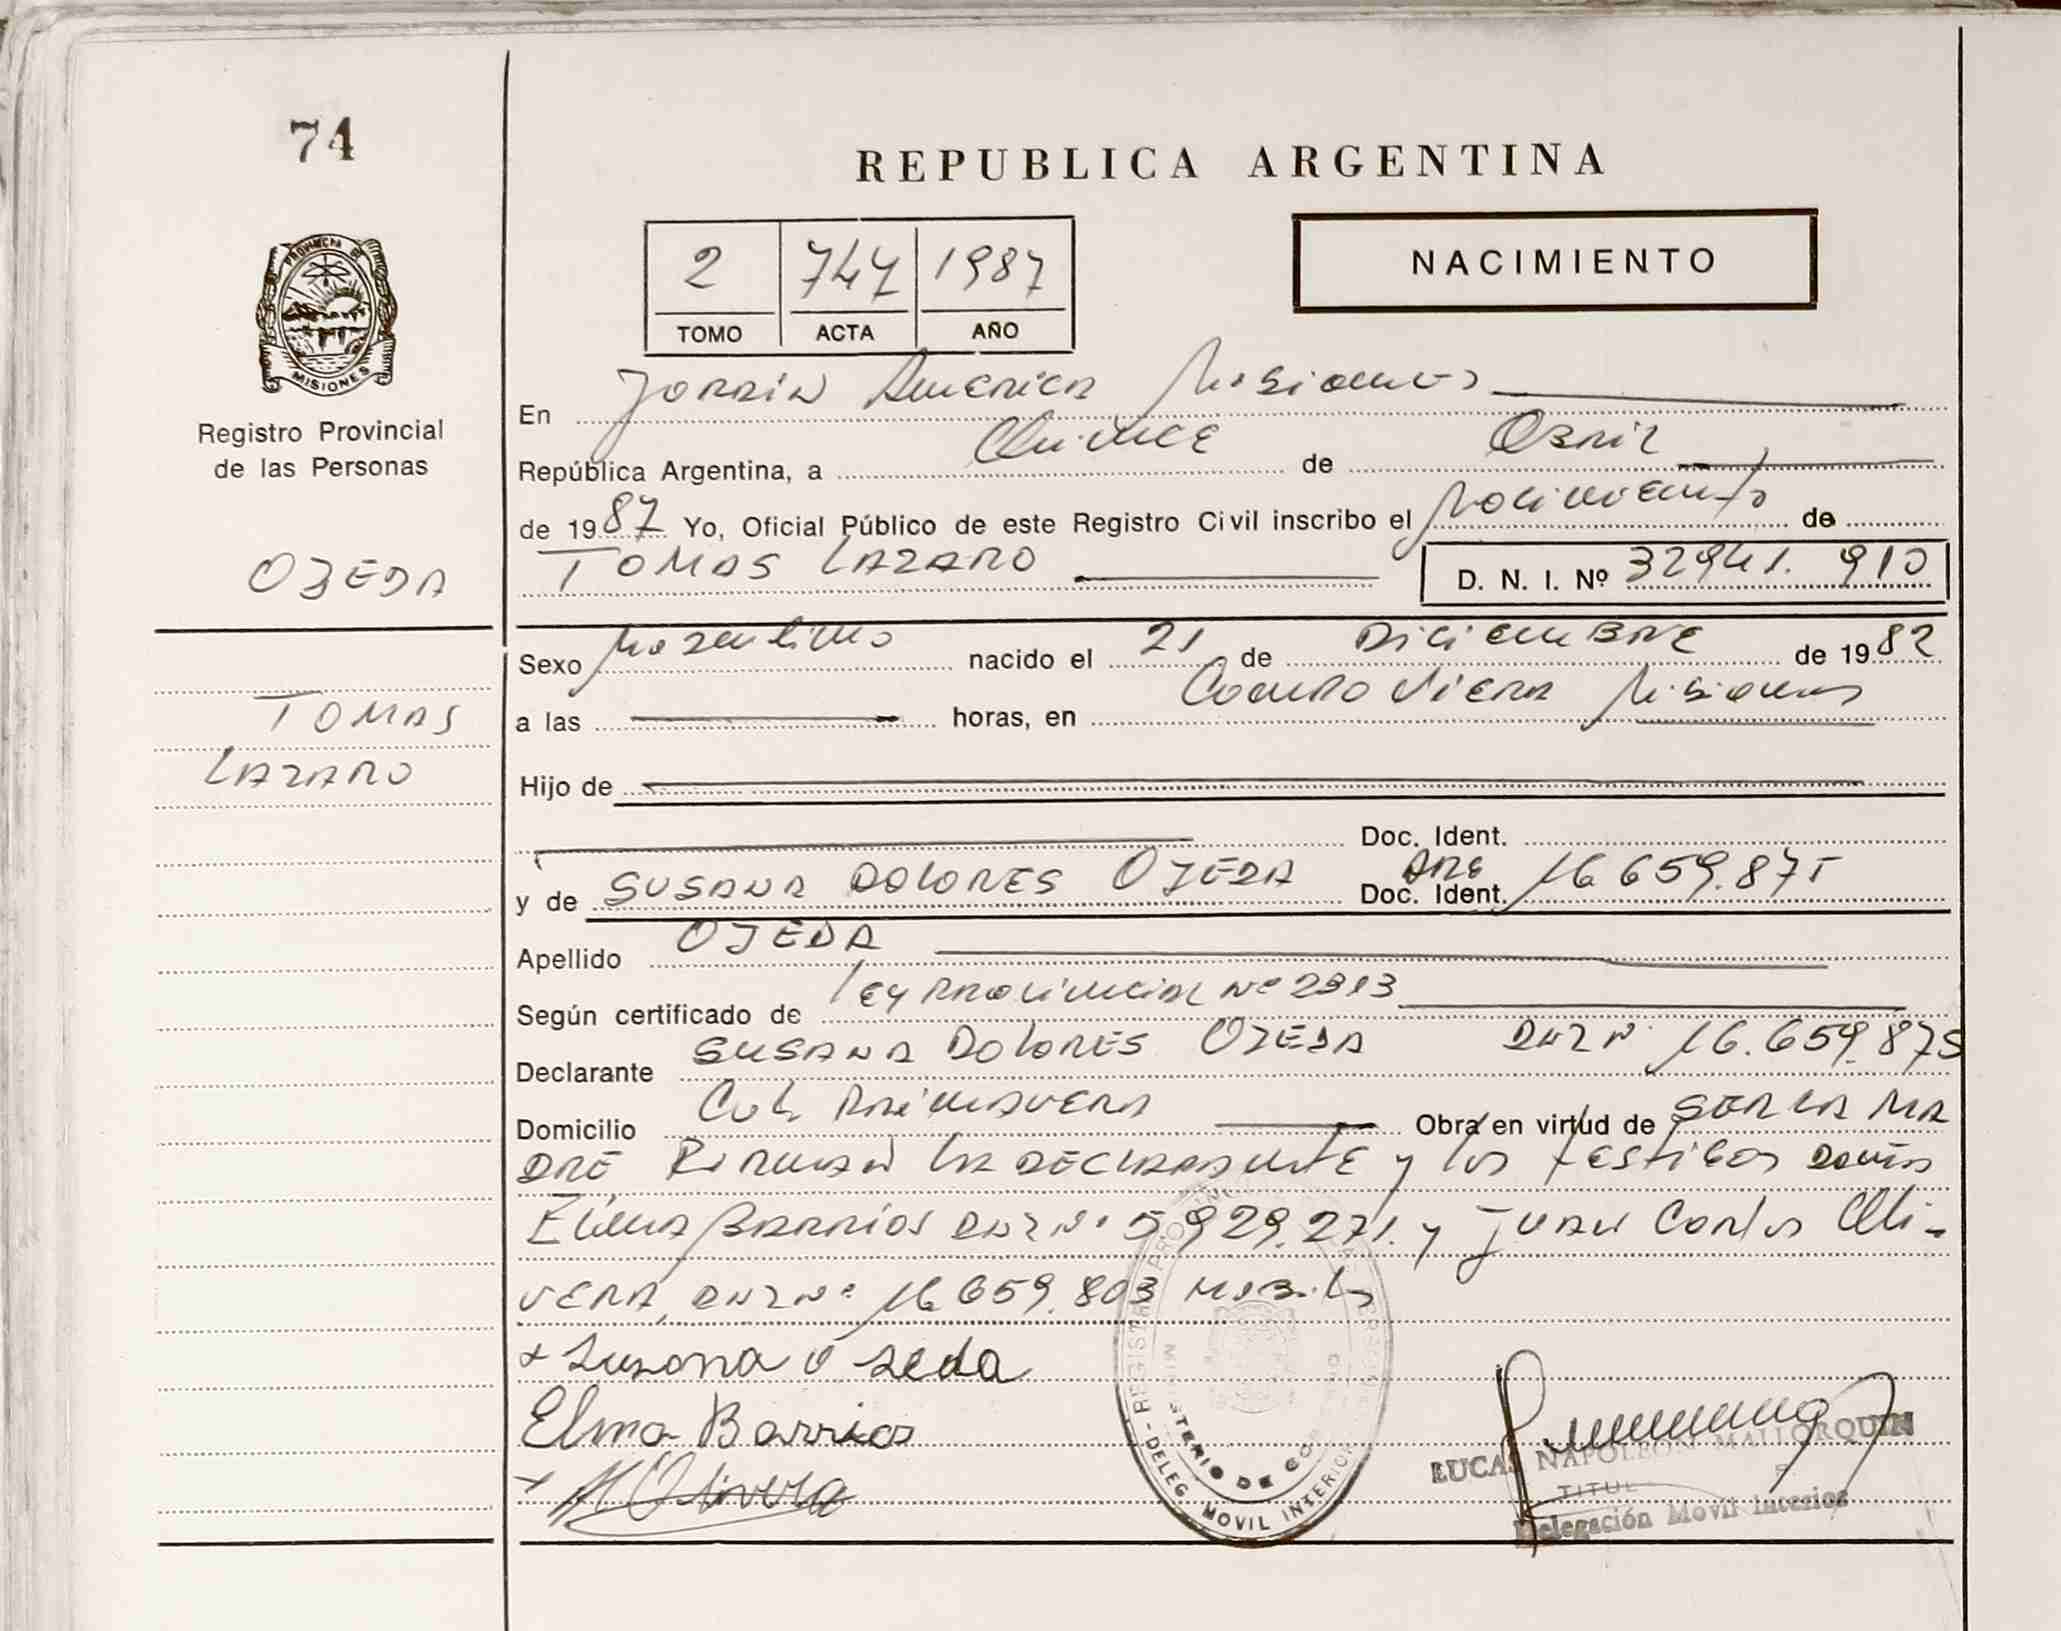 74
REPUBLICA ARGENTINA
2 747 1987
TOMO ACTA AÑO
NACIMIENTO
PROVINCIA DE
MISIONES
Registro Provincial
de las Personas
OJEDA
TOMAS
LAZARO
En Jardin America Misiones
República Argentina, a Quince de Abril
de 1987 Yo, Oficial Público de este Registro Civil inscribo el Nacimiento de
TOMAS LAZARO D. N. I. Nº 32941.910
Sexo Masculino nacido el 21 de DICIEMBRE de 1982
a las horas, en Misiones
Hijo de
Doc. Ident.
y de SUSANA DOLORES OJEDA Doc. Ident. 16.659.875
Apellido OJEDA
Según certificado de Ley Provincial Nº 2313
Declarante SUSANA DOLORES OJEDA DNI Nº 16.659.875
Domicilio Col. PRIMAVERA Obra en virtud de SER LA MA
DRE Firman LA DECLARANTE y los testigos Doña
Elma BARRIOS DNI Nº 5.929.271. y JUAN Carlos Oli-
VERA, DNI Nº 16.659.803
+ Susana Ojeda
Elma Barrios
+ Olivera
DELEG MOVIL INTERIOR
LUCAS NAPOLEON MALLORQUIN
TITUL
Delegación Movil Interior